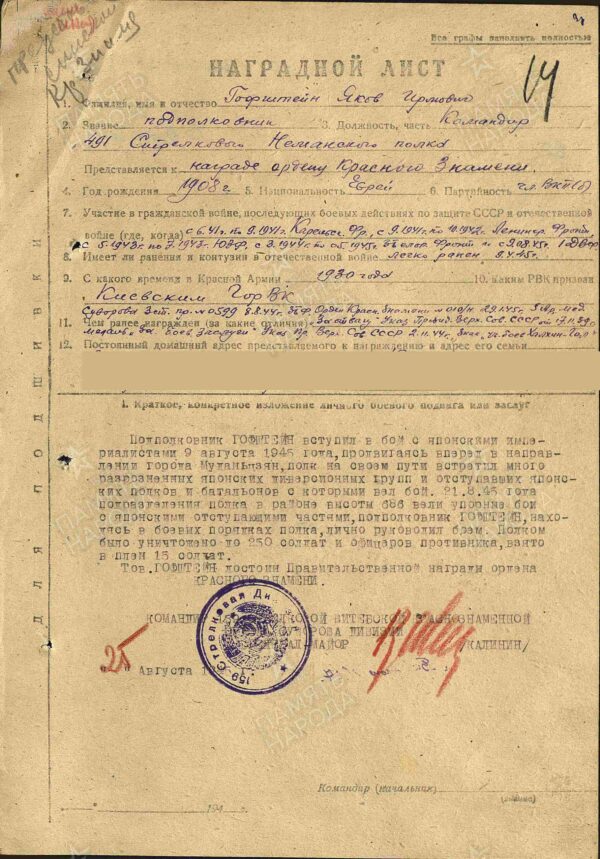 Представл
к ордену
Кр Знаме
Все графы заполнять полностью
НАГРАДНОЙ ЛИСТ
14
1. Фамилия, имя и отчество Гофштейн Яков
2. Звание подполковник 3. Должность, часть Командир
491 Стрелкового Неманского полка
Представляется к награде ордену Красного Знамени.
4. Год рождения 1908 г. 5. Национальность Еврей 6. Партийность чл. ВКП(б)
7. Участие в гражданской войне, последующих боевых действиях по защите СССР и отечественной
войне (где, когда) с 6.41 г. по 9.1941 г. Карельск. Фр., с 9.1941 г. по Ленингр. Фронт,
с 5-1943 г. по 7.1943- с 3.1944 г. по 05.1945 Белор. Фронт с 9.08.45 г. 1 ДВФр
8. Имеет ли ранения и контузии в отечественной войне легко ранен 9.4.45 г.
9. С какого времени в Красной Армии 1930 года 10. Каким РВК призван
Киевским ГорВК
Суворова 3 ст. пр. № 0599 8.8.44 г. Орден Красн. Знамени 29.1.45 г.
11. Чем ранее награжден (за какие отличия) Указ Презид. Верх. Сов. СССР от 17.11.39 г.
Медаль „За боев. Заслуги" Указ Пр. Верх. Сов СССР 2.11.44 г., Знак Халхин-Гола"
12. Постоянный домашний адрес представляемого к награждению и адрес его семьи
1. Краткое, конкретное изложение личного боевого подвига или заслуг
Подполковник ГОФШТЕЙН вступил в бой с японскими импе-
риалистами 9 августа 1945 года, продвигаясь вперед в направ-
лении города Муданьдзян, полк на своем пути встретил много
разрозненных японских диверсионных групп и отступавших япон-
ских полков и батальонов с которыми вел бой. 21.8.45 года
подразделения полка в районе высоты 686 вели упорные бои
с японскими отступающими частями, подполковник ГОФШТЕЙН, нахо-
дясь в боевых порядках полка, лично руководил боем. Полком
было уничтожено до 250 солдат и офицеров противника, взято
в плен 15 солдат.
Тов. ГОФШТЕЙН достоин Правительственной награды ордена
КРАСНОГО ЗНАМЕНИ.
КОМАНДИР СТРЕЛКОВОЙ ВИТЕБСКОЙ КРАСНОЗНАМЕННОЙ
СУВОРОВА ДИВИЗИИ
ГЕНЕРАЛ-МАЙОР /КАЛИНИН/
159 Стрелковая Ди
"25" Августа
Командир (начальник)
(подпись)
194 г.
ДЛЯ ПОДШИВКИ
ПАМЯТЬ НАРОДА